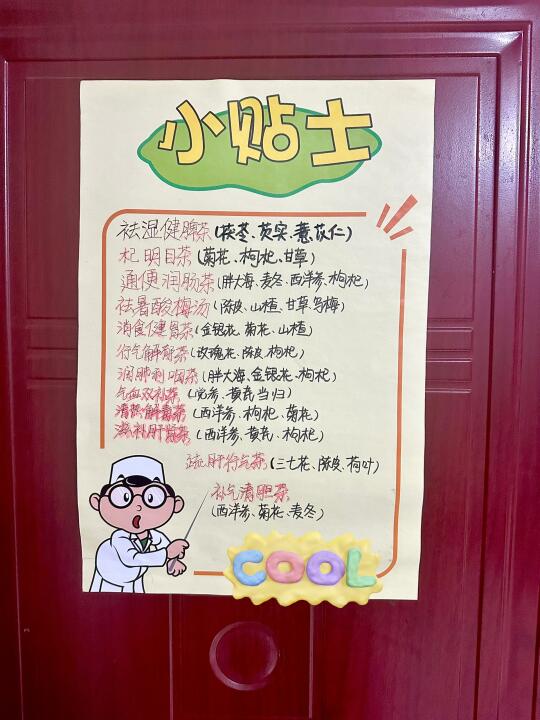 小贴士
祛湿健脾茶(茯苓、芡实、薏苡仁)
杞明目茶(菊花、枸杞、甘草)
通便润肠茶(胖大海、麦冬、西洋参、枸杞)
祛暑酸梅汤(陈皮、山楂、甘草、乌梅)
消食健胃茶(金银花、菊花、山楂)
行气解郁茶(玫瑰花、陈皮、枸杞)
润肺利咽茶(胖大海、金银花、枸杞)
气血双补茶(党参、黄芪、当归)
清热解毒茶(西洋参、枸杞、菊花)
滋补肝肾茶(西洋参、黄芪、枸杞)
疏肝行气茶(三七花、陈皮、荷叶)
补气清胆茶
(西洋参、菊花、麦冬)
COOL